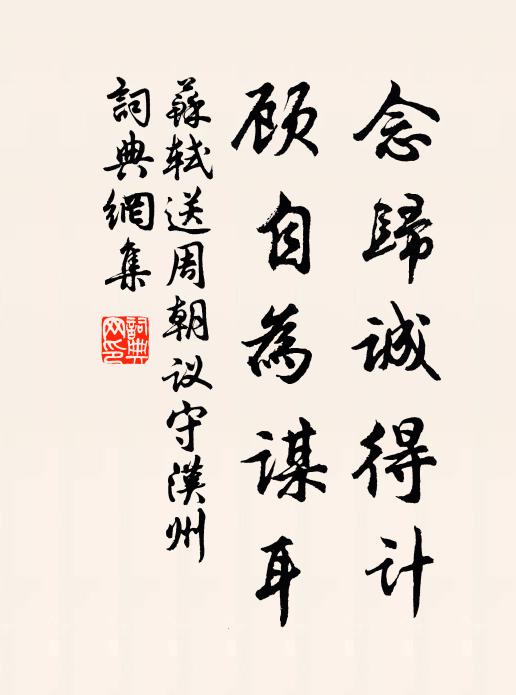 念歸誠得计
顾自為謀耳
蘇軾送周朝议守漢州
詞典網集
詞典
网印